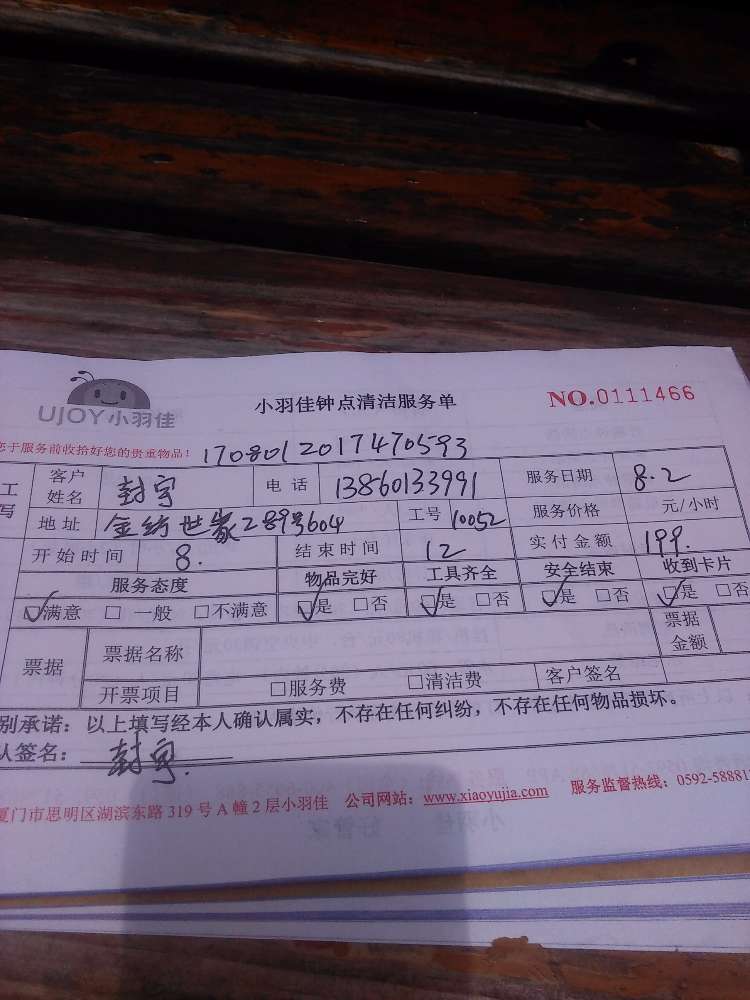 UJOY小羽佳
小羽佳钟点清洁服务单
NO.0111466
您于服务前收拾好您的贵重物品！ 170801201747059 3
工 客户姓名 封宇 电 话 13860133991 服务日期 8.2
写 地 址 金纺世家289号604 工号 10052 服务价格 元/小时
开 始 时 间 8. 结 束 时 间 12 实 付 金 额 199.
服务态度 物品完好 工具齐全 安全结束 收到卡片
☑满意 □ 一般 □不满意 ☑是 □否 ☑是 □否 ☑是 □否 ☑是 □否
票据 票据名称 票据金额
开票项目 □服务费 □清洁费 客户签名
别承诺：以上填写经本人确认属实，不存在任何纠纷，不存在任何物品损坏。
认签名： 封宇.
厦门市思明区湖滨东路 319 号 A 幢 2 层小羽佳 公司网站：www.xiaoyujia.com 服务监督热线：0592-58881